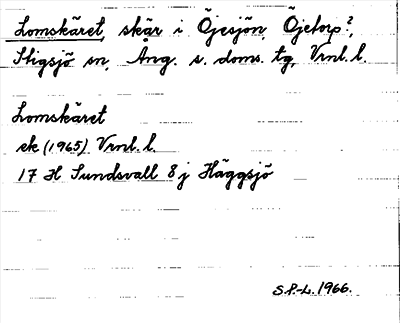 Lomskäret, skär i Öjesjön, Öjetorp?,
Stigsjö sn, Ång. s. doms. tg, Vrnl. l.
Lomskäret
ek (1965) Vrnl. l.
17 H Sundsvall 8 j Häggsjö
S.P-L. 1966.